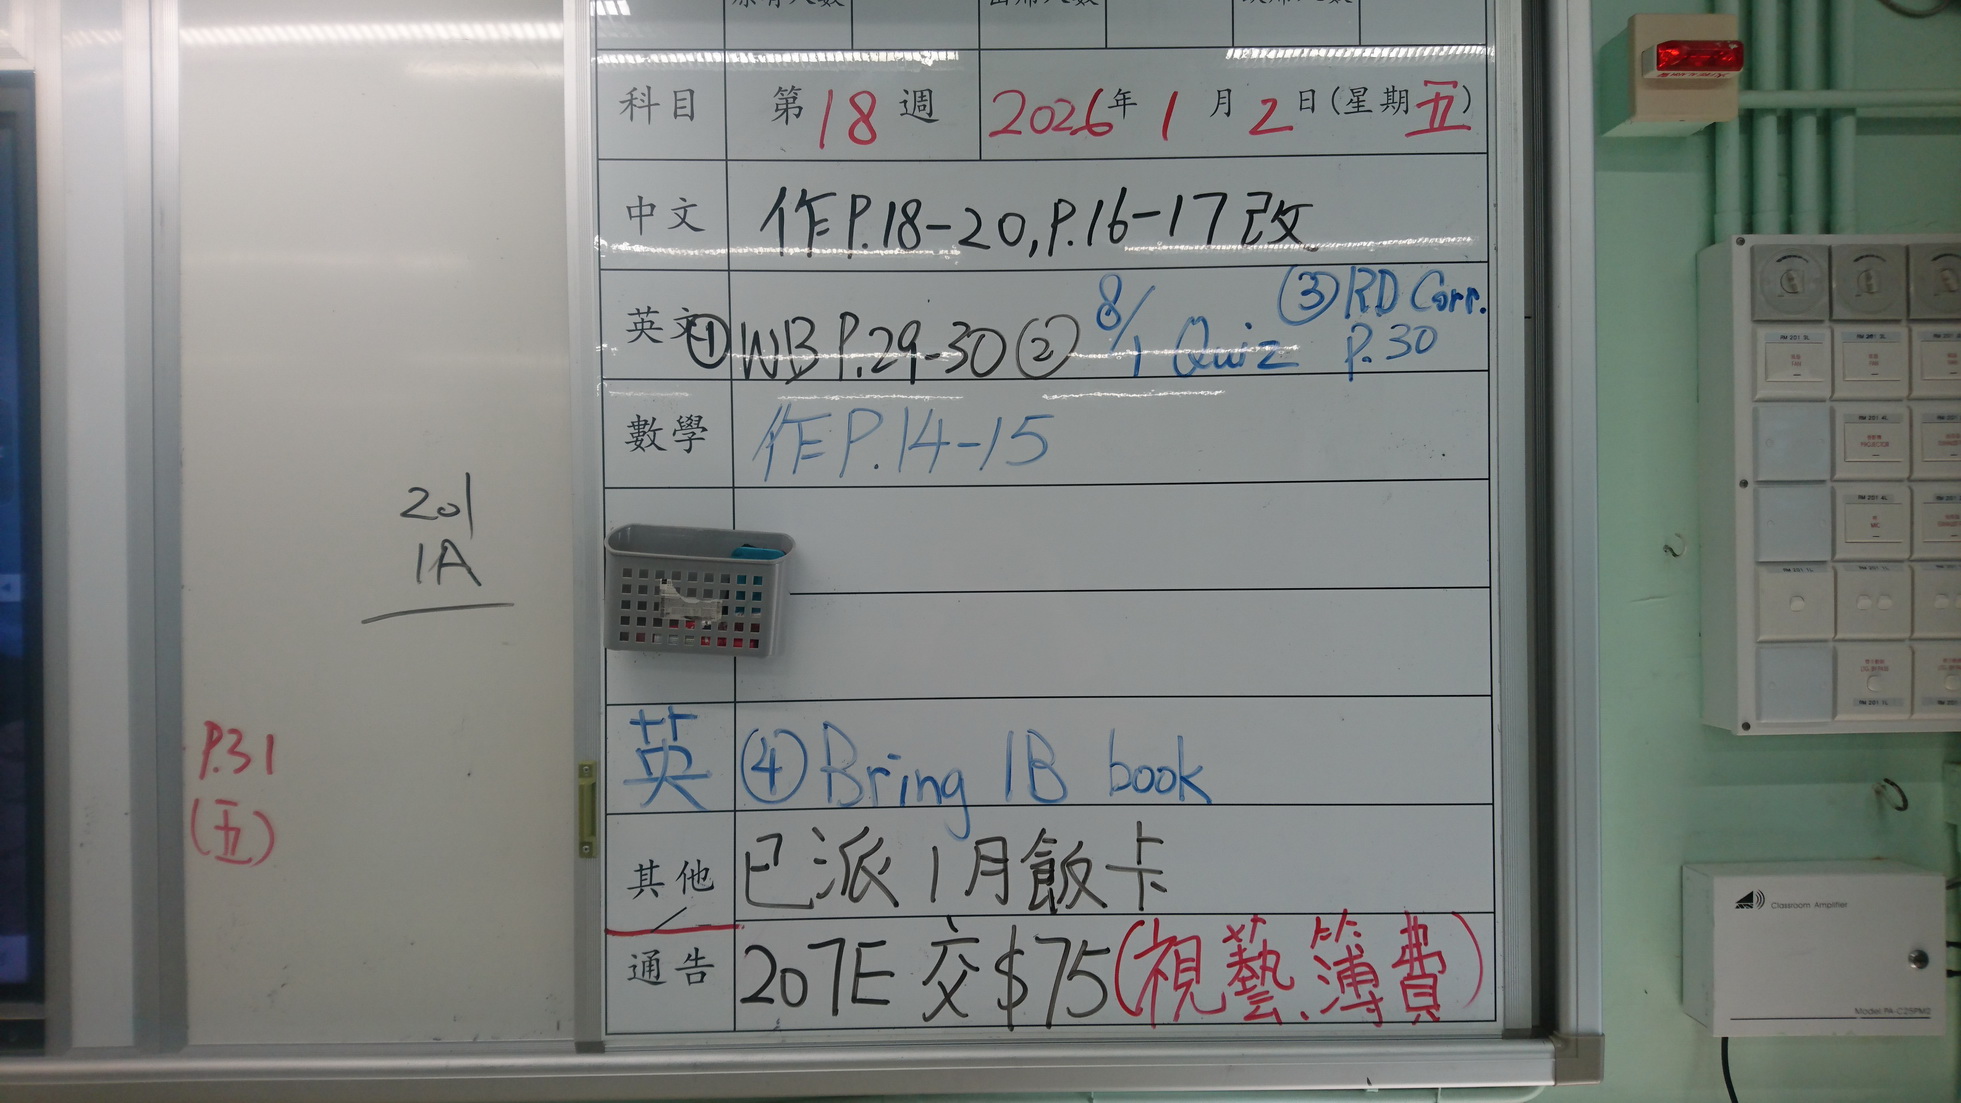 科目 第18週 2026年1月2日(星期五)
中文 作P.18-20,P.16-17改
英文 ①WB P.29-30 ② 8/1 Quiz ③RD Corr. P.30
數學 作P.14-15
201
1A
P.31
(五)
英 ④Bring 1B book
其他 已派1月飯卡
通告 207E 交$75(視藝.簿費)
Classroom Amplifier
Model PA-C25PM2